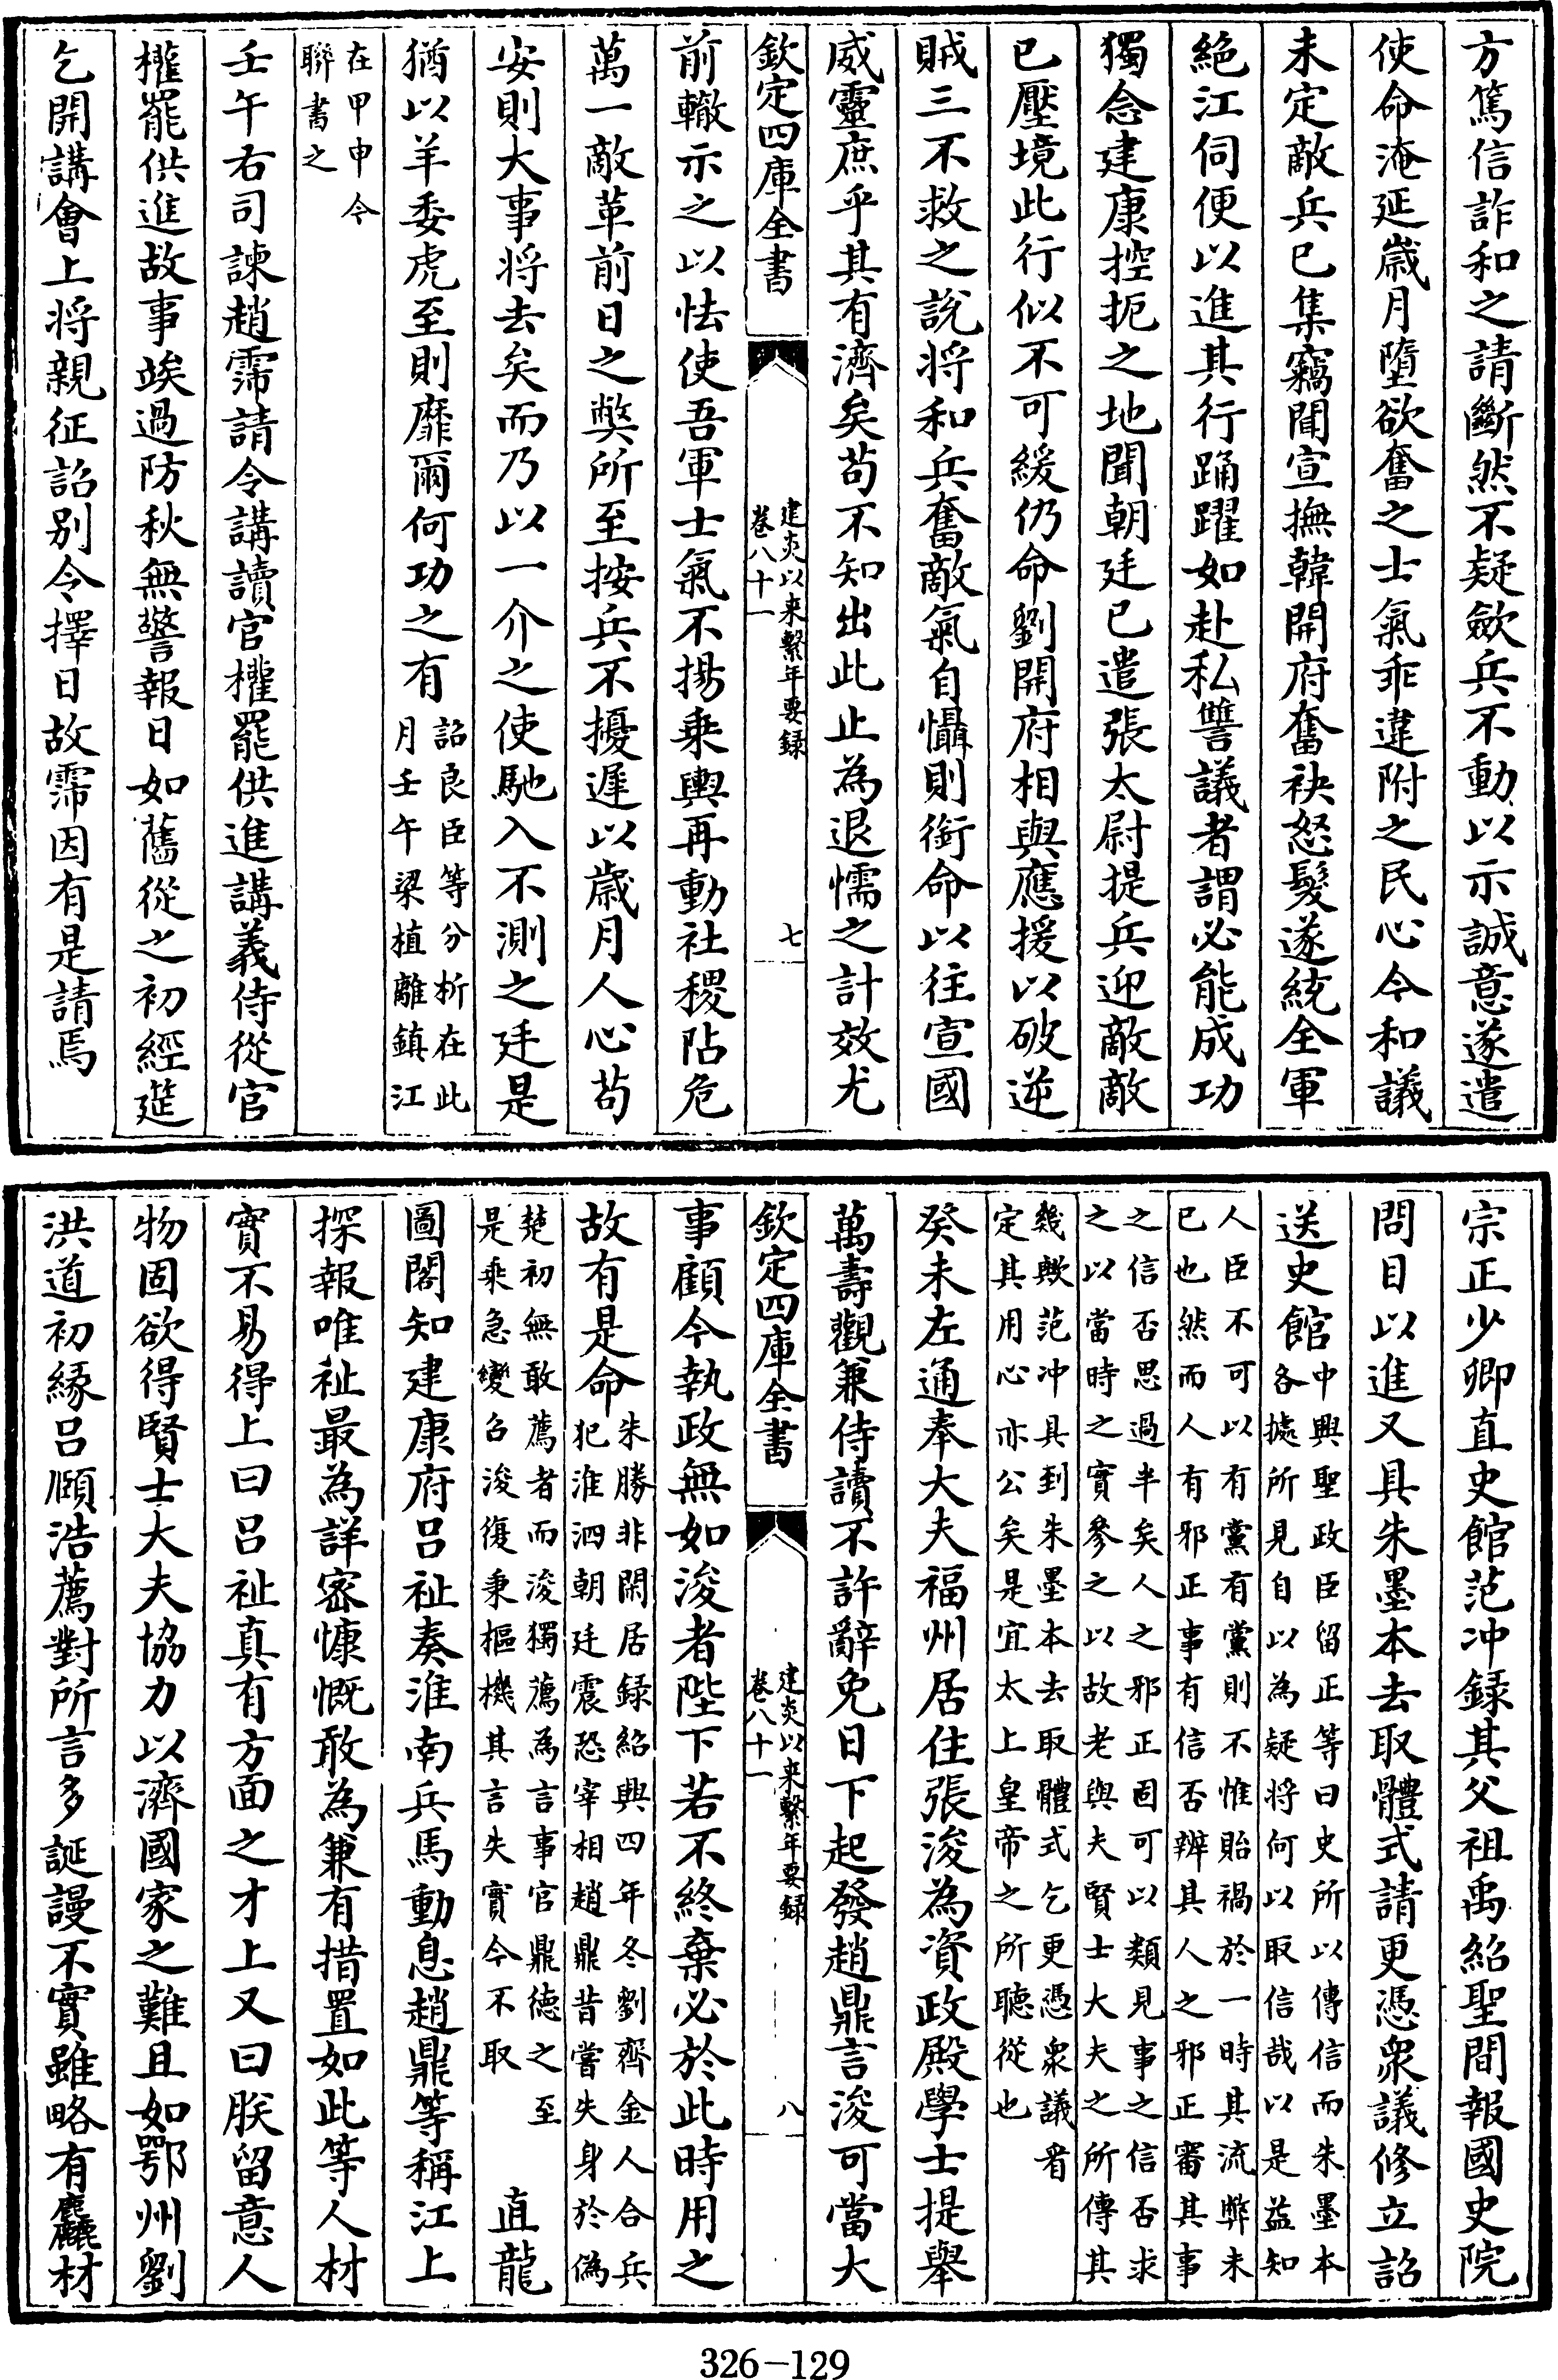 方篤信詐和之請斷然不疑歛兵不動以示誠意遂遣
使命淹延歲月墮欲奮之士氣乖違附之民心今和議
未定敵兵已集竊聞宣撫韓開府奮袂怒髮遂統全軍
絶江伺便以進其行踊躍如赴私讐議者謂必能成功
獨念建康控扼之地聞朝廷已遣張太尉提兵迎敵敵
已壓境此行似不可緩仍命劉開府相與應援以破逆
賊三不救之說将和兵奮敵氣自懾則銜命以往宣國
威靈庶乎其有濟矣苟不知出此止為退懦之計效尤
欽定四庫全書
建炎以来繫年要録
卷八十一
七
前轍示之以怯使吾軍士氣不揚乗輿再動社稷阽危
萬一敵革前日之弊所至按兵不擾遲以歲月人心苟
安則大事将去矣而乃以一介之使馳入不測之廷是
猶以羊委虎至則靡爾何功之有
詔良臣等分析在此
月壬午梁植離鎮江
在甲申今
聨書之
壬午右司諫趙霈請令講讀官權罷供進講義侍從官
權罷供進故事竢過防秋無警報日如舊從之初經筵
乞開講會上将親征詔别令擇日故霈因有是請焉
宗正少卿直史館范冲録其父祖禹紹聖間報國史院
問目以進又具朱墨本去取體式請更憑衆議修立詔
送史館
中興聖政臣留正等曰史所以傳信而朱墨本
各據所見自以為疑将何以取信哉以是益知
人臣不可以有黨有黨則不惟貽禍於一時其流弊未
已也然而人有邪正事有信否辨其人之邪正審其事
之信否思過半矣人之邪正固可以類見事之信否求
之以當時之實參之以故老與夫賢士大夫之所傳其
幾歟范冲具到朱墨本去取體式乞更憑衆議者
定其用心亦公矣是宜太上皇帝之所聽從也
癸未左通奉大夫福州居住張浚為資政殿學士提舉
萬壽觀兼侍讀不許辭免日下起發趙鼎言浚可當大
欽定四庫全書
建炎以来繫年要録
卷八十一
八
事顧今執政無如浚者陛下若不終棄必於此時用之
故有是命
朱勝非閑居録紹興四年冬劉齊金人合兵
犯淮泗朝廷震恐宰相趙鼎昔嘗失身於偽
楚初無敢薦者而浚獨薦為言事官鼎德之至
是乗急變召浚復秉樞機其言失實今不取
直龍
圖閣知建康府吕祉奏淮南兵馬動息趙鼎等稱江上
探報唯祉最為詳密慷慨敢為兼有措置如此等人材
實不易得上曰吕祉真有方面之才上又曰朕留意人
物固欲得賢士大夫協力以濟國家之難且如鄂州劉
洪道初緣吕頤浩薦對所言多誕謾不實雖略有麤材
326-129